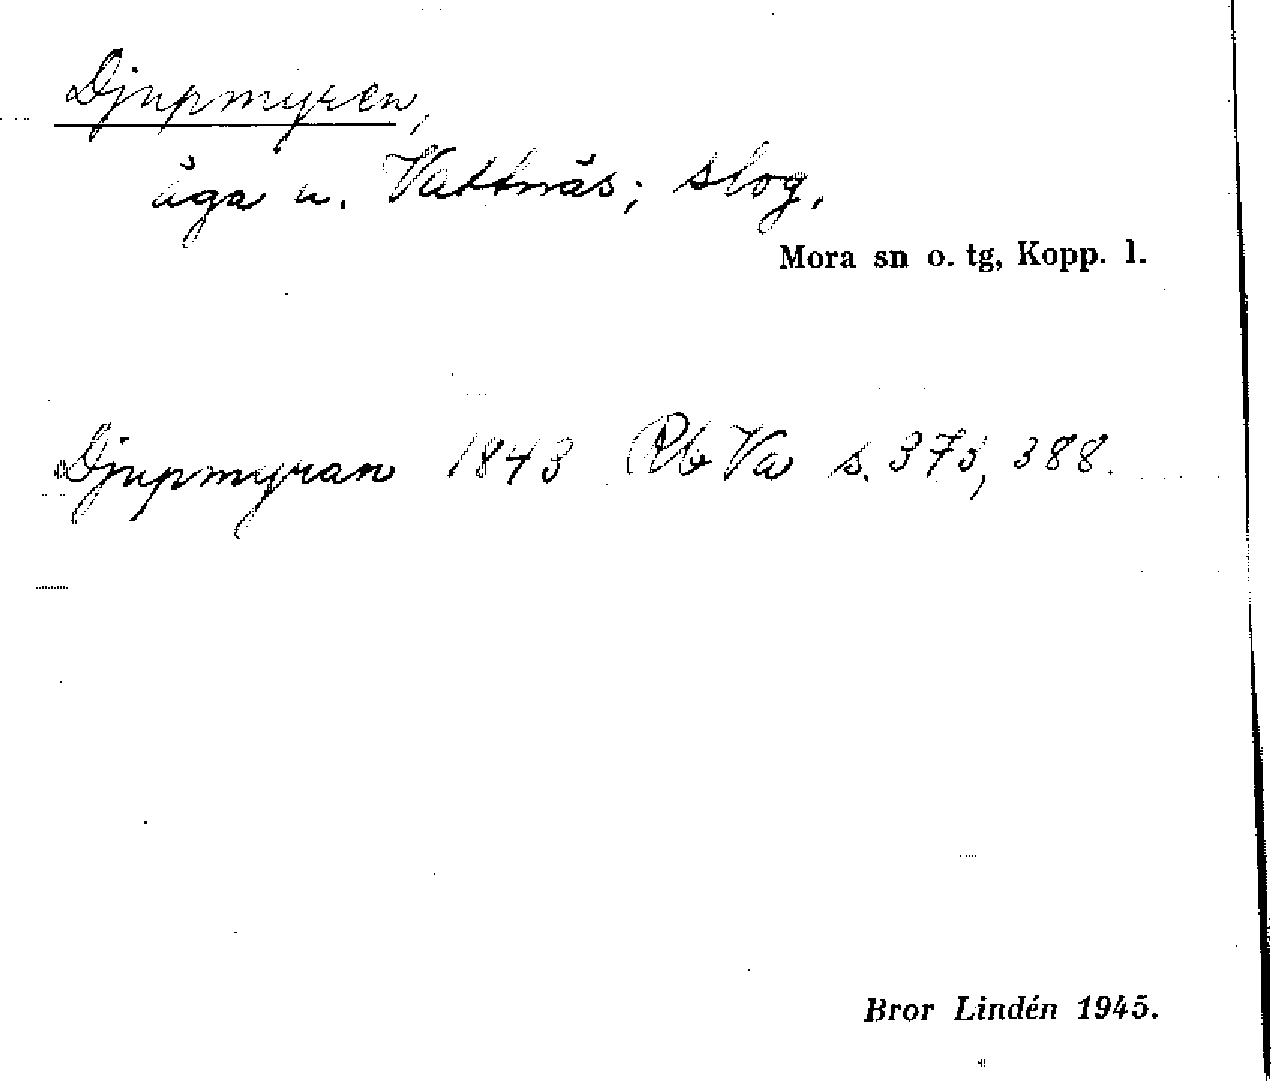 Djupmyren,
äga u. Vattnäs; skog.
Mora sn o. tg, Kopp. l.
Djupmyran 1843 Rb Va s. 373, 388.
Bror Lindén 1945.